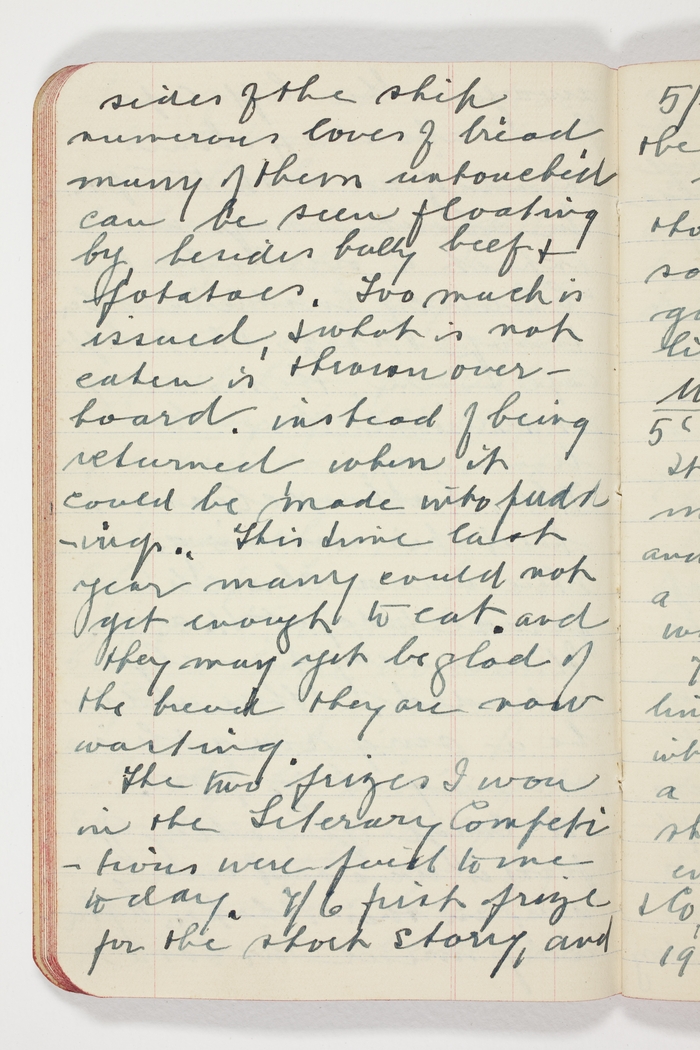 sides of the ship
numerous loves of bread
many of them untouched
can be seen floating
by besides bully beef +
potatoes. Too much is
issued & what is not
eaten is thrown over-
board. instead of being
returned when it
could be made into pudd
-ings.. This time last
year many could not
get enough to eat. and
they may yet be glad of
the bread they are now
wasting.
The two prizes I won
in the Literary Competi
-tions were paid to me
today. 7/6 first prize
for the short story, and
5/
the
a
a
19